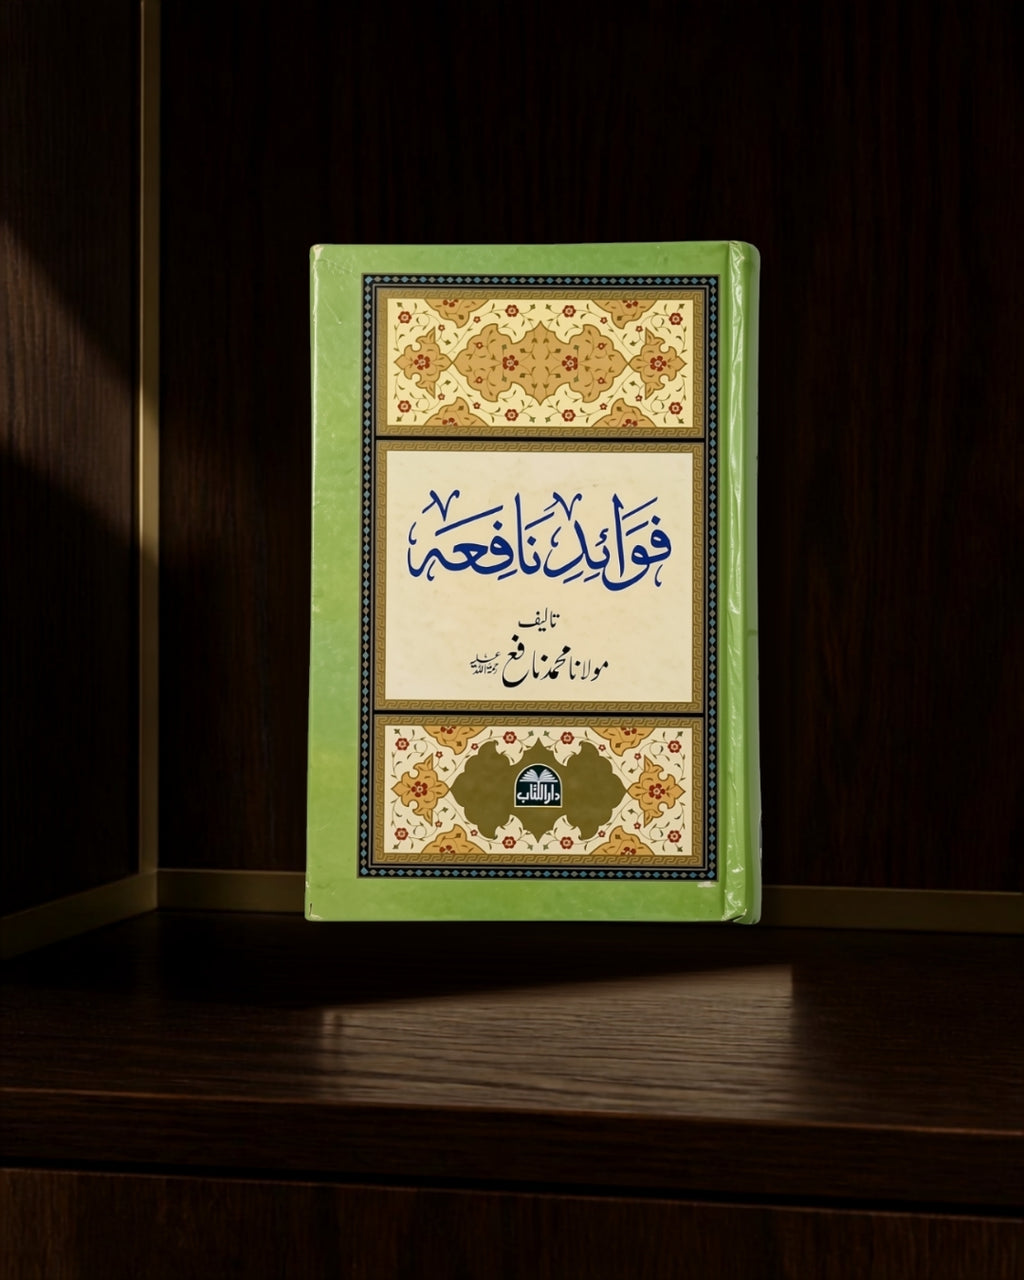 فَوَائِدِ نَافِعَہ
تالیف
مولانا محمد نافع رحمۃ اللہ علیہ
دارالکتاب